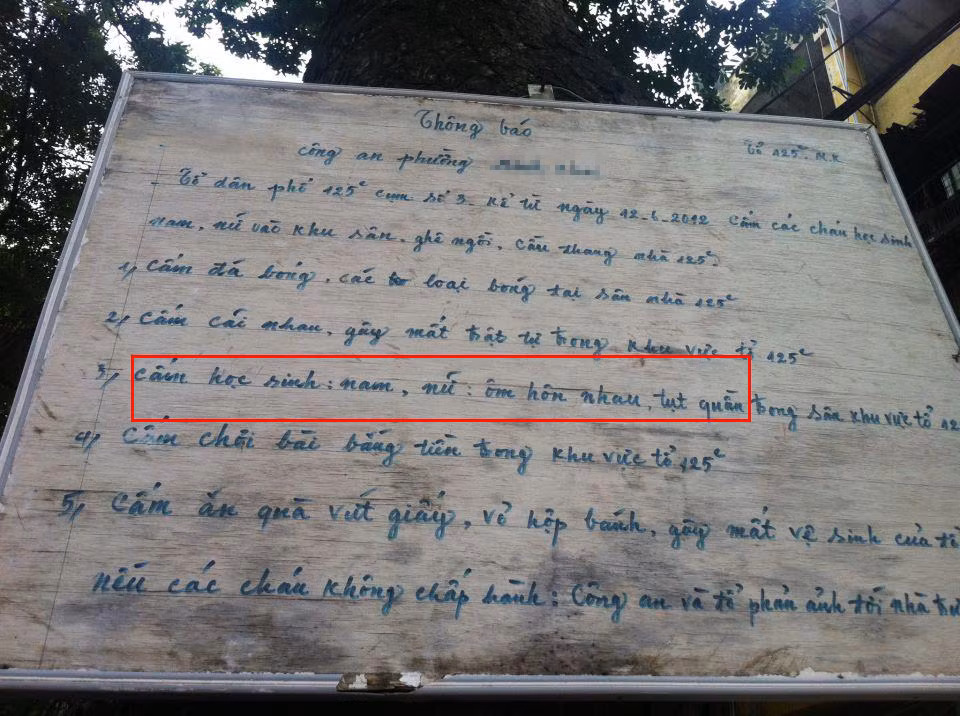 Thông báo
Tổ 125ᶜ. M.K
công an phường
- Tổ dân phố 125ᶜ cụm số 3. Kể từ ngày 12-6-2012 cấm các cháu học sinh
nam, nữ vào khu sân, ghế ngồi, cầu thang nhà 125ᶜ.
1, cấm đá bóng, các loại bóng tại sân nhà 125ᶜ
2, cấm cãi nhau, gây mất trật tự trong khu vực tổ 125ᶜ
3, cấm học sinh: nam, nữ: ôm hôn nhau, tụt quần trong sân khu vực tổ 12
4, cấm chơi bài bằng tiền trong khu vực tổ 125ᶜ
5, cấm ăn quà vứt giấy, vỏ hộp bánh, gây mất vệ sinh của tổ
nếu các cháu không chấp hành: Công an và tổ phản ảnh tới nhà